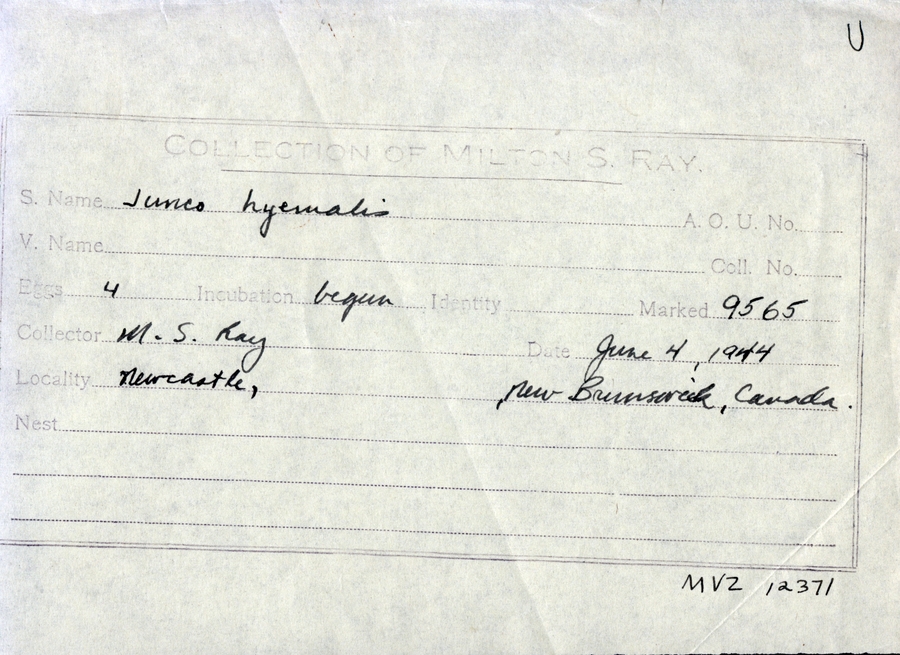 U
COLLECTION OF MILTON S. RAY.
S. Name Junco hyemalis A. O. U. No.
V. Name Coll. No.
Eggs 4 Incubation begun Identity Marked 9565
Collector M. S. Ray Date June 4, 1944
Locality Newcastle, New Brunswick, Canada.
Nest
MVZ 12371